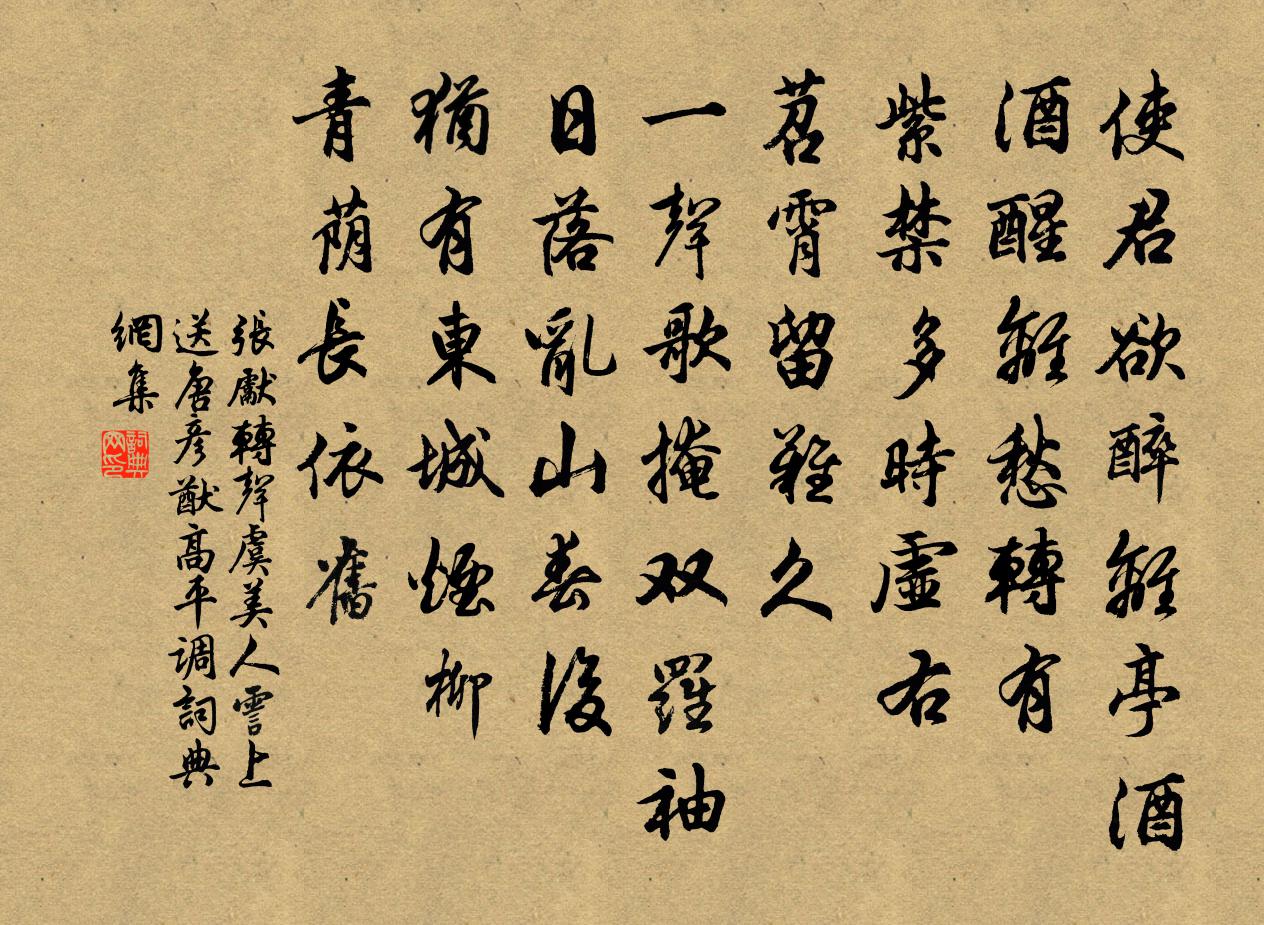 使君欲醉離亭酒
酒醒離愁轉有
紫禁多時虛右
苕霄留難久
一聲歌掩双羅袖
日落亂山春後
猶有東城煙柳
青荫長依舊
張獻轉聲虞美人霅上
送唐彦猷高平调詞典
網集
詞典
网印